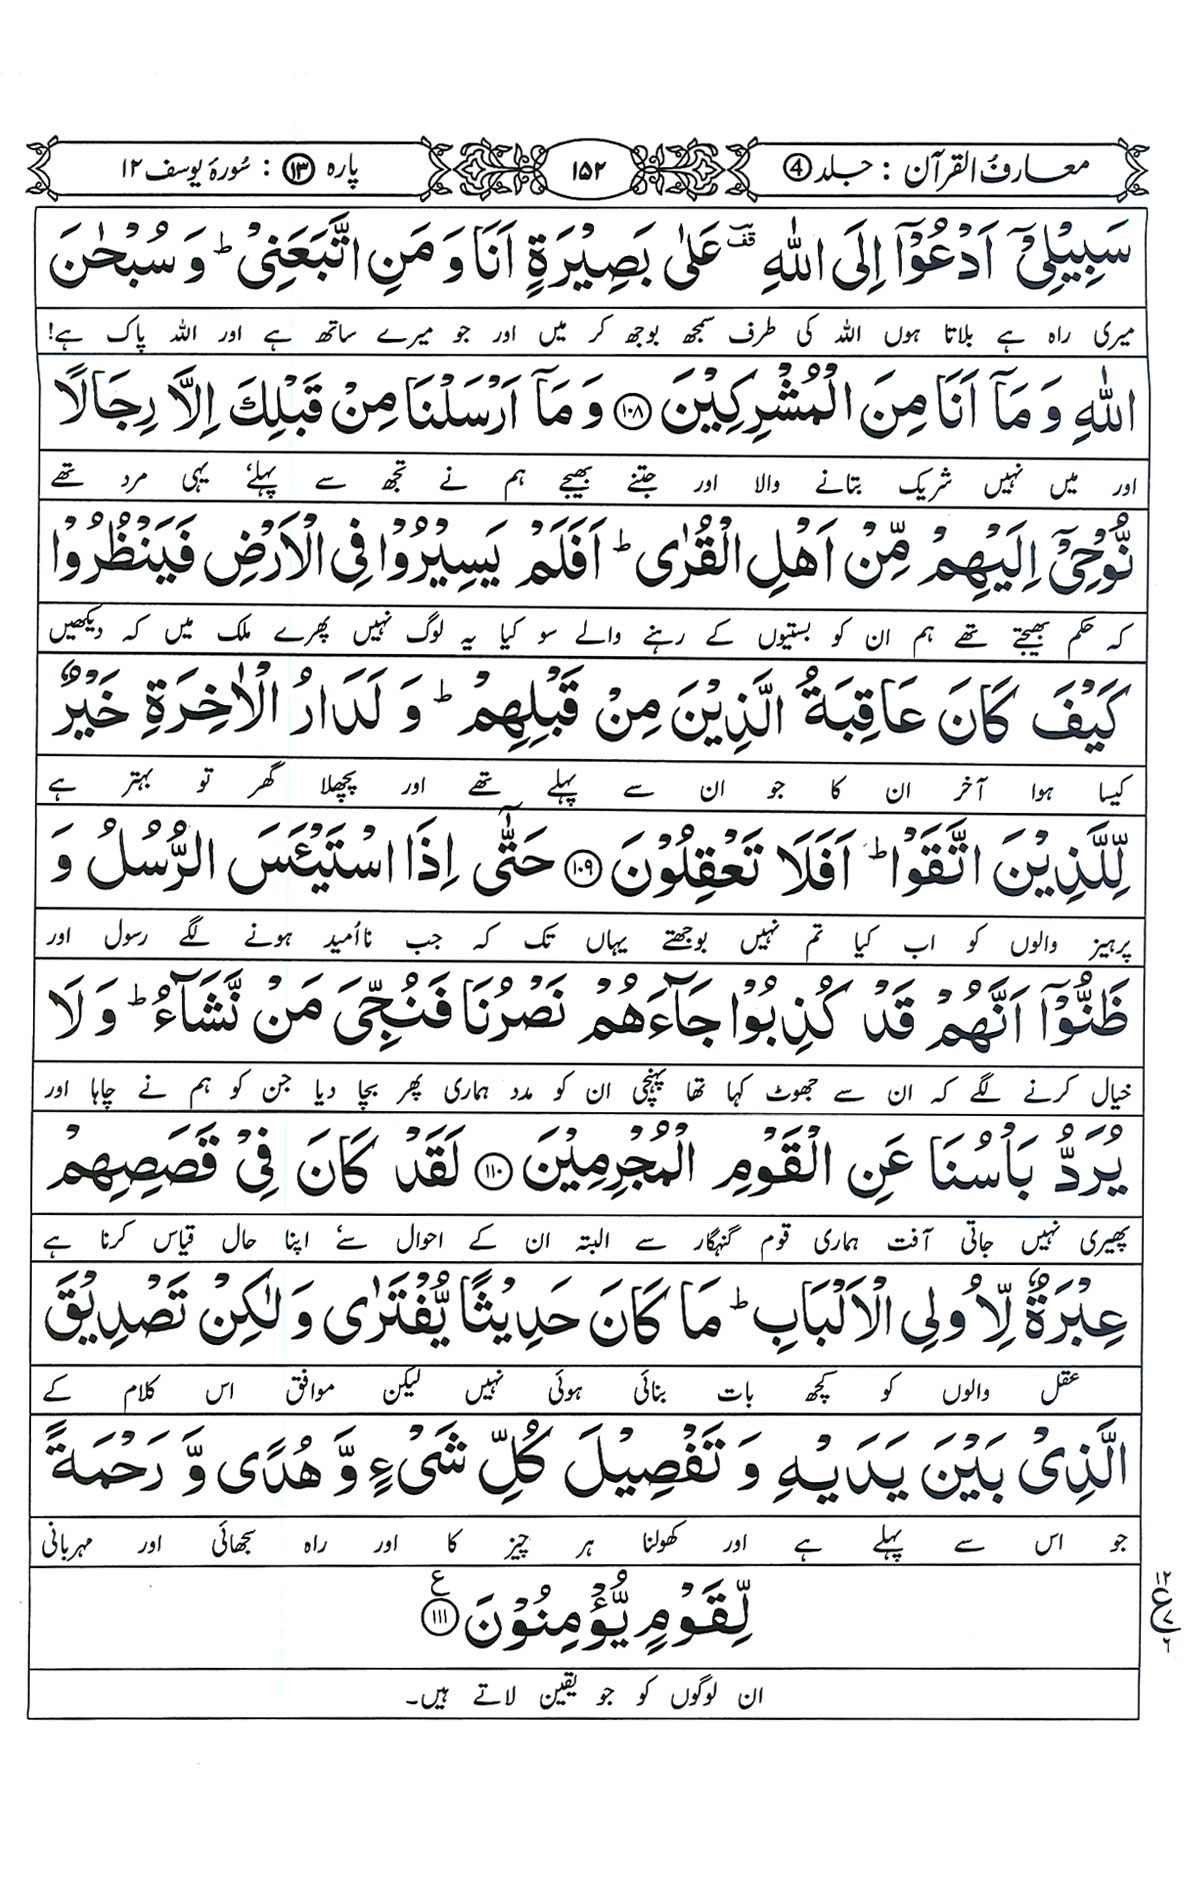 معارف القرآن : جلد ④
۱۵۲
پارہ ⑬ : سُورۂ یوسف ۱۲
سَبِيْلِيْٓ اَدْعُوْٓا اِلَى اللّٰهِ ؔقف عَلٰى بَصِيْرَةٍ اَنَا وَ مَنِ اتَّبَعَنِيْ ؕ وَ سُبْحٰنَ
میری راہ ہے بلاتا ہوں اللہ کی طرف سمجھ بوجھ کر میں اور جو میرے ساتھ ہے اور اللہ پاک ہے!
اللّٰهِ وَ مَآ اَنَا مِنَ الْمُشْرِكِيْنَ ﴿۱۰۸﴾ وَ مَآ اَرْسَلْنَا مِنْ قَبْلِكَ اِلَّا رِجَالًا
اور میں نہیں شریک بتانے والا اور جتنے بھیجے ہم نے تجھ سے پہلے یہی مرد تھے
نُّوْحِيْٓ اِلَيْهِمْ مِّنْ اَهْلِ الْقُرٰى ؕ اَفَلَمْ يَسِيْرُوْا فِى الْاَرْضِ فَيَنْظُرُوْا
کہ حکم بھیجتے تھے ہم ان کو بستیوں کے رہنے والے سو کیا یہ لوگ نہیں پھرے ملک میں کہ دیکھیں
كَيْفَ كَانَ عَاقِبَةُ الَّذِيْنَ مِنْ قَبْلِهِمْ ؕ وَ لَدَارُ الْاٰخِرَةِ خَيْرٌ
کیسا ہوا آخر ان کا جو ان سے پہلے تھے اور پچھلا گھر تو بہتر ہے
لِّلَّذِيْنَ اتَّقَوْا ؕ اَفَلَا تَعْقِلُوْنَ ﴿۱۰۹﴾ حَتّٰٓى اِذَا اسْتَيْـَٔسَ الرُّسُلُ وَ
پرہیز والوں کو اب کیا تم نہیں بوجھتے یہاں تک کہ جب نااُمید ہونے لگے رسول اور
ظَنُّوْٓا اَنَّهُمْ قَدْ كُذِبُوْا جَآءَهُمْ نَصْرُنَا فَنُجِّىَ مَنْ نَّشَآءُ ؕ وَ لَا
خیال کرنے لگے کہ ان سے جھوٹ کہا تھا پہنچی ان کو مدد ہماری پھر بچا دیا جن کو ہم نے چاہا اور
يُرَدُّ بَاْسُنَا عَنِ الْقَوْمِ الْمُجْرِمِيْنَ ﴿۱۱۰﴾ لَقَدْ كَانَ فِيْ قَصَصِهِمْ
پھیری نہیں جاتی آفت ہماری قوم گنہگار سے البتہ ان کے احوال سے اپنا حال قیاس کرنا ہے
عِبْرَةٌ لِّاُولِى الْاَلْبَابِ ؕ مَا كَانَ حَدِيْثًا يُّفْتَرٰى وَ لٰكِنْ تَصْدِيْقَ
عقل والوں کو کچھ بات بنائی ہوئی نہیں لیکن موافق اس کلام کے
الَّذِيْ بَيْنَ يَدَيْهِ وَ تَفْصِيْلَ كُلِّ شَيْءٍ وَّ هُدًى وَّ رَحْمَةً
جو اس سے پہلے ہے اور کھولنا ہر چیز کا اور راہ سجھائی اور مہربانی
لِّقَوْمٍ يُّؤْمِنُوْنَ ﴿۱۱۱﴾ ع
۱۲
ع
۷
۶
ان لوگوں کو جو یقین لاتے ہیں۔